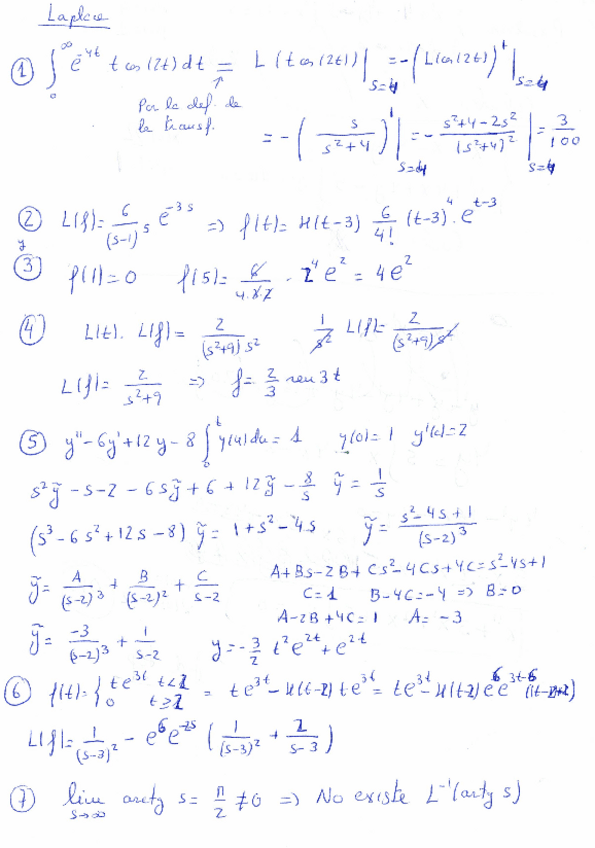 Laplace
① ∫₀^∞ e^{-4t} t cos(2t) dt = L(t cos(2t))|_{s=4} = -(L(cos(2t)))'|_{s=4}
Por la def. de
la transf.
= -(s/(s²+4))'|_{s=4} = - (s²+4-2s²)/(s²+4)²|_{s=4} = 3/100
② L(f) = 6/(s-1)⁵ e^{-3s} => f(t) = H(t-3) 6/4! (t-3)⁴ · e^{t-3}
y
③ f(1)=0 f(5) = 6/(4·3·2) · 2⁴ e² = 4e²
④ L(t) · L(f) = 2/((s²+9)s²) 1/s² L(f) = 2/((s²+9)s²)
L(f) = 2/(s²+9) => f = 2/3 sen 3t
⑤ y'' - 6y' + 12y - 8 ∫₀^t y(u)du = 1 y(0)=1 y'(0)=2
s²ỹ - s - 2 - 6sỹ + 6 + 12ỹ - 8/s ỹ = 1/s
(s³ - 6s² + 12s - 8) ỹ = 1 + s² - 4s ỹ = (s²-4s+1)/(s-2)³
ỹ = A/(s-2)³ + B/(s-2)² + C/(s-2) A+Bs-2B+Cs²-4Cs+4C = s²-4s+1
C=1 B-4C=-4 => B=0
A-2B+4C=1 A=-3
ỹ = -3/(s-2)³ + 1/(s-2) y = -3/2 t² e^{2t} + e^{2t}
⑥ f(t) = { t e^{3t} t<2 0 t≥2 = te^{3t} - H(t-2) te^{3t} = te^{3t} - H(t-2) e⁶ e^{3t-6} (t-2+2)
L(f) = 1/(s-3)² - e⁶ e^{-2s} (1/(s-3)² + 2/(s-3))
⑦ lim_{s→∞} arctg s = π/2 ≠ 0 => No existe L⁻¹(arctg s)